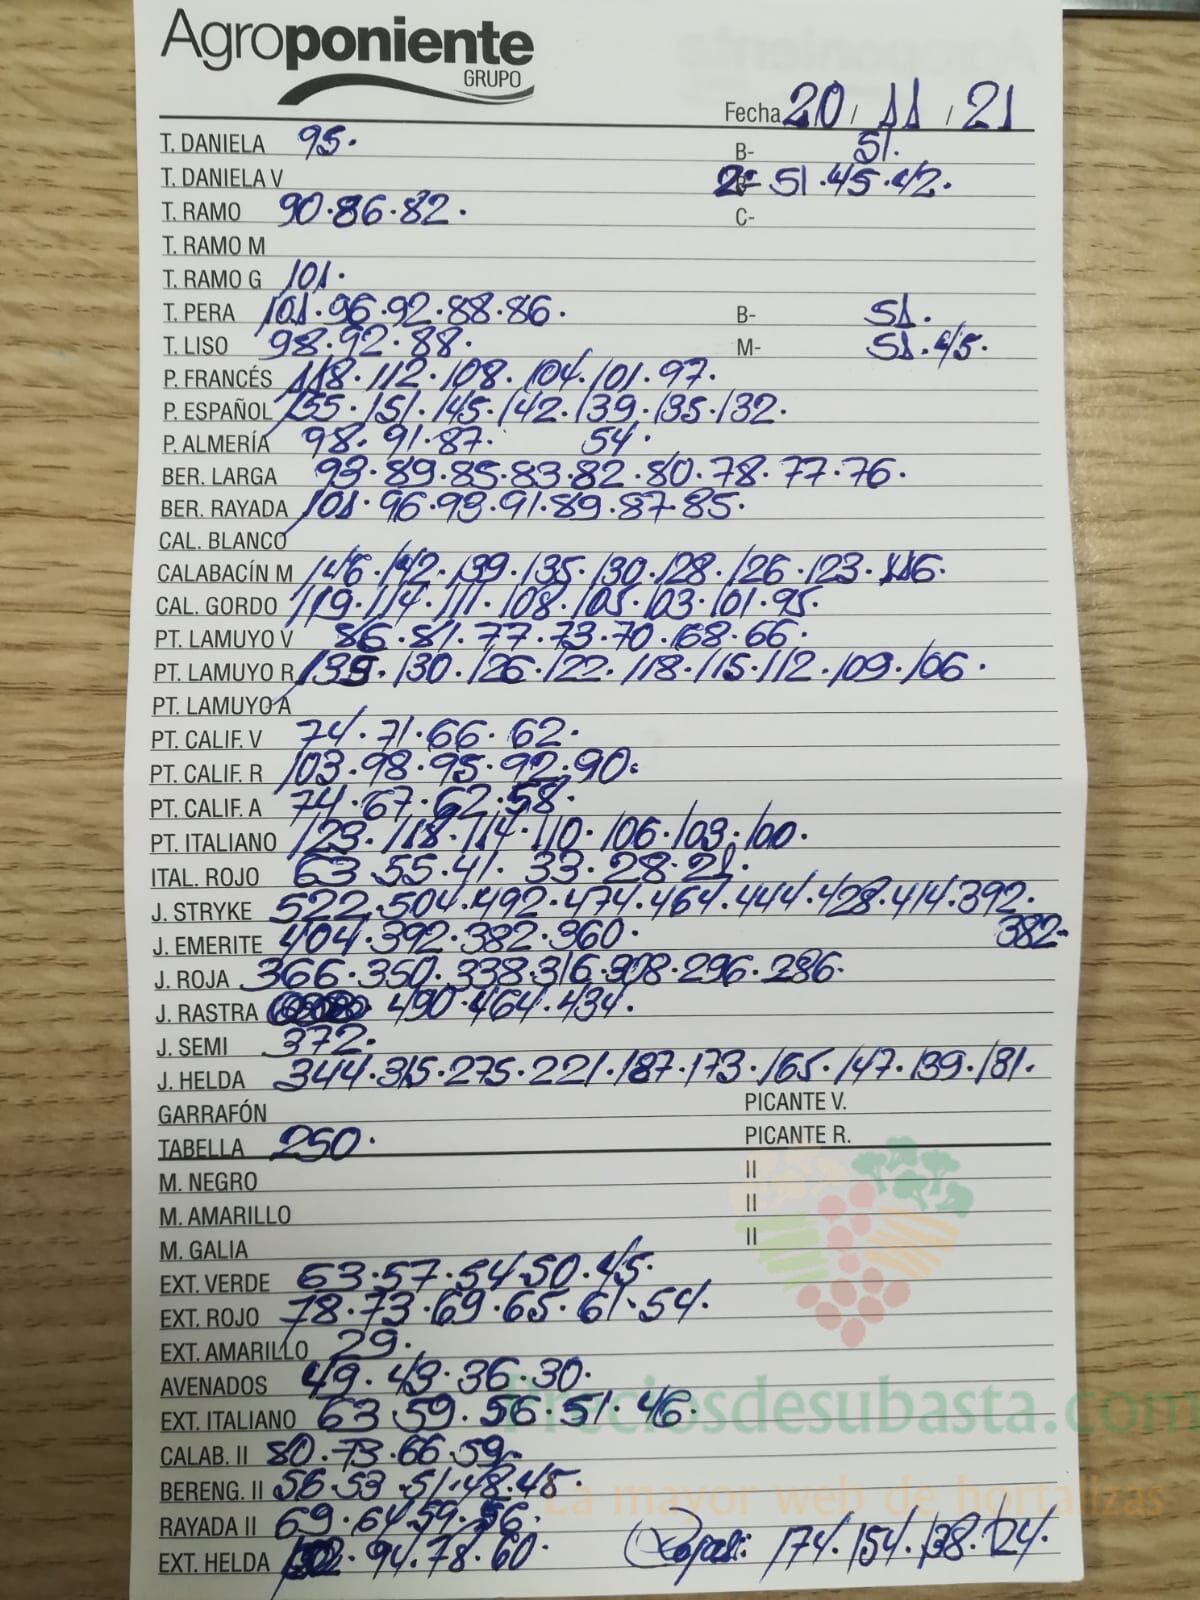 Agroponiente
GRUPO
Fecha 20 / 11 / 21
T. DANIELA 95. B- 51.
T. DANIELA V 2- 51.45.42.
T. RAMO 90.86.82. C-
T. RAMO M
T. RAMO G 101.
T. PERA 101.96.92.88.86. B- 51.
T. LISO 98.92.88. M- 51.45.
P. FRANCÉS 118.112.108.104.101.97.
P. ESPAÑOL 155.151.145.142.139.135.132.
P. ALMERÍA 98.91.87. 54.
BER. LARGA 93.89.85.83.82.80.78.77.76.
BER. RAYADA 101.96.93.91.89.87.85.
CAL. BLANCO
CALABACÍN M 146.142.139.135.130.128.126.123.116.
CAL. GORDO 119.114.111.108.105.103.101.95.
PT. LAMUYO V 86.81.77.73.70.68.66.
PT. LAMUYO R 139.130.126.122.118.115.112.109.106.
PT. LAMUYO A
PT. CALIF. V 74.71.66.62.
PT. CALIF. R 103.98.95.92.90.
PT. CALIF. A 74.67.62.58.
PT. ITALIANO 123.118.114.110.106.103.100.
ITAL. ROJO 63.55.41.33.28.21.
J. STRYKE 522.504.492.474.464.444.428.414.392.
J. EMERITE 404.392.382.360. 382.
J. ROJA 366.350.338.316.308.296.286.
J. RASTRA 490.464.434.
J. SEMI 372.
J. HELDA 344.315.275.221.187.173.165.147.139.131.
GARRAFÓN PICANTE V.
TABELLA 250. PICANTE R.
M. NEGRO II
M. AMARILLO II
M. GALIA II
EXT. VERDE 63.57.54.50.45.
EXT. ROJO 78.73.69.65.61.54.
EXT. AMARILLO 29.
AVENADOS 49.43.36.30.
Preciosdesubasta.com
EXT. ITALIANO 63.59.56.51.46.
CALAB. II 80.73.66.59.
BERENG. II 56.53.51.48.45.
La mayor web de hortalizas
RAYADA II 69.64.59.56.
EXT. HELDA 94.78.60. 174.154.138.124.